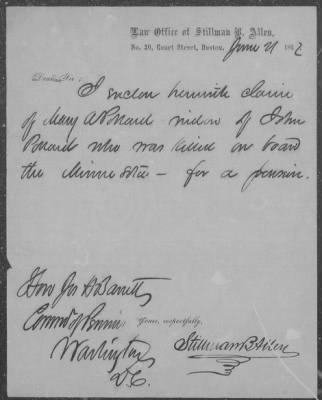 Law Office of Stillman B. Allen,
No. 20, Court Street, Boston, June 21 1862
Dear Sir:
I enclose herewith claim
of Mary A widow of John
who was killed on board
the Minnesota - for a pension.
Yours, respectfully,
Stillman B Allen
Hon Jos H Barrett
Commr of Pensions
Washington
D.C.